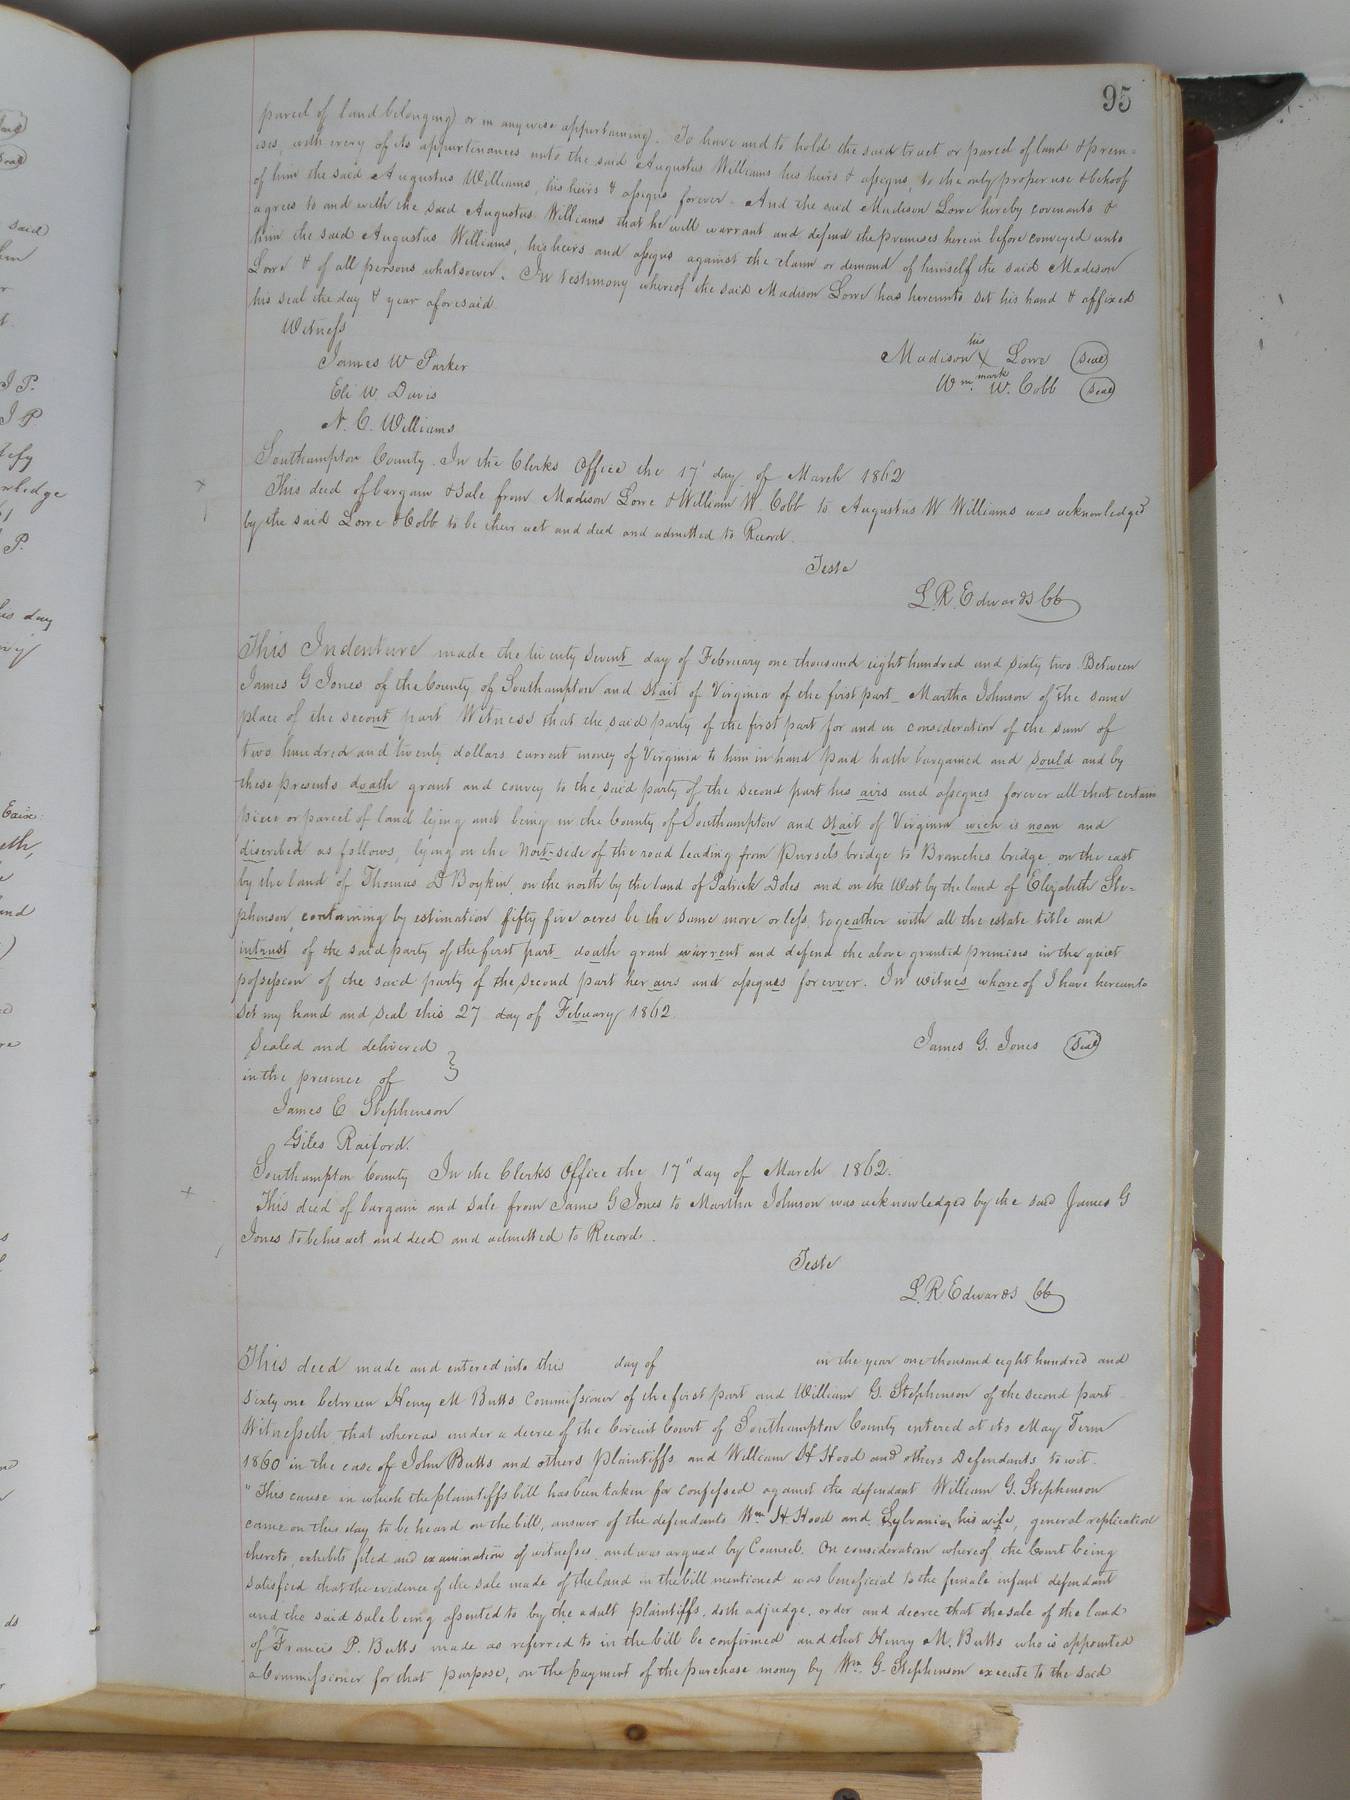 95
parcel of land belonging or in anywise appertaining. To have and to hold the said tract or parcel of land & prem=
ises, with every of its appurtenances unto the said Augustus Williams his heirs & assigns, to the only proper use & behoof
of him the said Augustus Williams, his heirs & assigns forever. And the said Madison Lowe hereby covenants &
agrees to and with the said Augustus Williams that he will warrant and defend the premises herein before conveyed unto
him the said Augustus Williams, his heirs and assigns against the claim or demand of himself the said Madison
Lowe & of all persons whatsoever. In testimony whereof the said Madison Lowe has hereunto set his hand & affixed
his seal the day & year aforesaid.
Witness
James W Parker
Eli W Davis
N. C. Williams
his
Madison X Lowe (Seal)
mark
Wm. W. Cobb (Seal)
Southampton County. In the Clerks Office the 17' day of March 1862
This deed of bargain & sale from Madison Lowe & William W. Cobb to Augustus W Williams was acknowledged
by the said Lowe & Cobb to be their act and deed and admitted to Record.
Teste
L. R. Edwards CC
This Indenture made the twenty sevent day of February one thousand eight hundred and sixty two Between
James G Jones of the County of Southampton and Stait of Virginia of the first part Martha Johnson of the same
place of the secont part Witness that the said party of the first part for and in consideration of the sum of
two hundred and twenty dollars current money of Virginia to him in hand paid hath bargained and sould and by
these presents doath grant and convey to the said party of the second part his airs and assignes forever all that certain
piece or parcel of land lying and being in the County of Southampton and Stait of Virginia wich is noan and
discribed as follows, lying on the Nort-side of the road leading from Pursels bridge to Branches bridge, on the east
by the land of Thomas D Boykin, on the north by the land of Patrick Doles and on the West by the land of Elizabeth Ste=
phenson, containing by estimation fifty five acres be the same more or less togeather with all the estate title and
intrust of the said party of the first part doath grant warrent and defend the above granted premises in the quiet
possession of the said party of the second part her airs and assignes forevver. In witnes whareof I have hereunto
set my hand and seal this 27 day of Febuary 1862.
Sealed and delivered }
in the presence of
James E Stephenson
Giles Raiford.
James G. Jones (Seal)
Southampton County In the Clerks Office the 17" day of March 1862.
This deed of bargain and sale from James G Jones to Martha Johnson was acknowledged by the said James G
Jones to be his act and deed and admitted to Record.
Teste
L. R. Edwards CC
This deed made and entered into this day of in the year one thousand eight hundred and
sixty one between Henry M Butts Commissioner of the first part and William G. Stephenson of the second part
Witnesseth that whereas under a decree of the Circuit Court of Southampton County entered at its May Term
1860 in the case of John Butts and others Plaintiffs and William H Hood and others Defendants to wit.
"This cause in which the plaintiffs bill has been taken for confessed against the defendant William G. Stephenson
came on this day to be heard on the bill, answer of the defendants Wm H Hood and Sylvania his wife, general replication
thereto, exhibits filed and examination of witnesses and was argued by Counsel. On consideration whereof the Court being
satisfied that the evidence of the sale made of the land in the bill mentioned was beneficial to the female infant defendant
and the said sale being assented to by the adult plaintiffs, doth adjudge, order and decree that the sale of the land
of Francis P. Butts made as referred to in the bill be confirmed and that Henry M. Butts who is appointed
a Commissioner for that purpose, on the payment of the purchase money by Wm G. Stephenson execute to the said